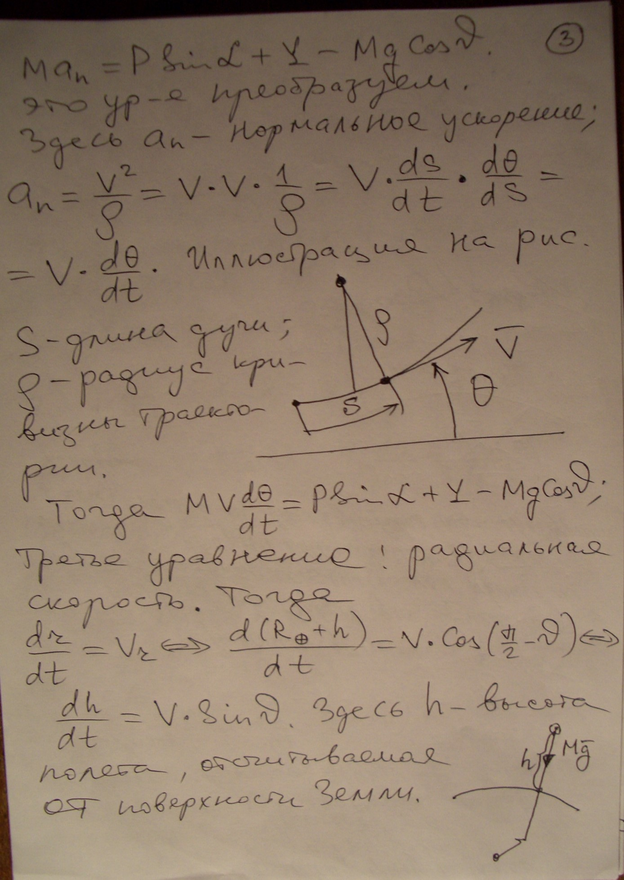 Ma_n = P sin α + Y − Mg cos ϑ. ③
это ур-е преобразуем.
Здесь a_n − нормальное ускорение;
a_n = V²/ρ = V·V·1/ρ = V·dS/dt·dθ/dS =
= V·dθ/dt. Иллюстрация на рис.
S − длина дуги;
ρ − радиус кри-
визны траекто-
рии.
ρ
V̅
S
θ
Тогда MV dθ/dt = P sin α + Y − Mg cos ϑ;
Третье уравнение: радиальная
скорость. Тогда
dr/dt = V_r ⇔ d(R_⊕+h)/dt = V·Cos(π/2 − ϑ) ⇔
dh/dt = V·Sin ϑ. Здесь h − высота
полета, отсчитываемая
от поверхности Земли.
h
Mg̅